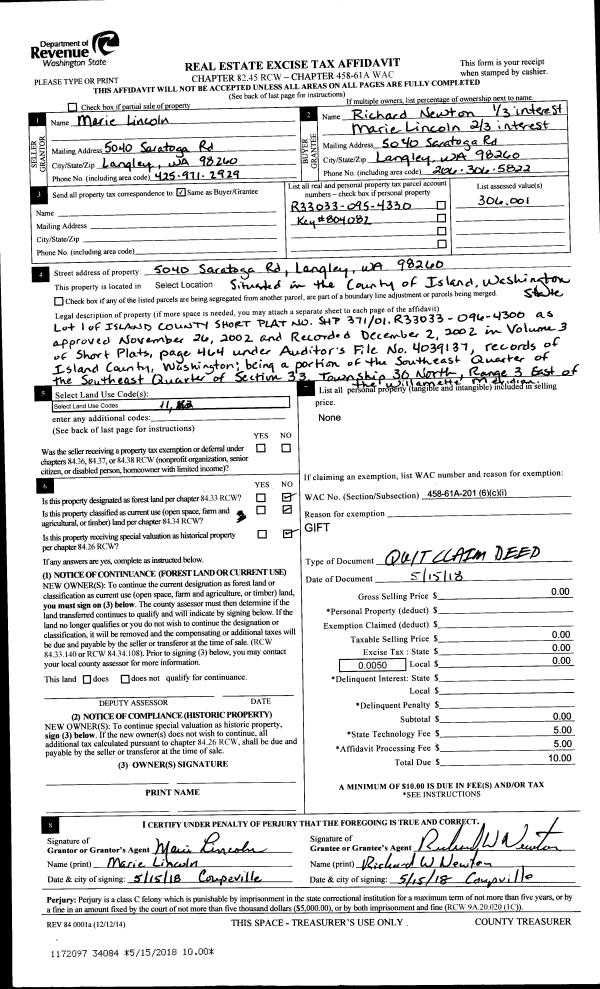 Department of
Revenue
Washington State
PLEASE TYPE OR PRINT
REAL ESTATE EXCISE TAX AFFIDAVIT
CHAPTER 82.45 RCW – CHAPTER 458-61A WAC
This form is your receipt
when stamped by cashier.
THIS AFFIDAVIT WILL NOT BE ACCEPTED UNLESS ALL AREAS ON ALL PAGES ARE FULLY COMPLETED
(See back of last page for instructions)
Check box if partial sale of property
If multiple owners, list percentage of ownership next to name.
1
SELLER
GRANTOR
Name Marie Lincoln
Mailing Address 5040 Saratoga Rd
City/State/Zip Langley, WA 98260
Phone No. (including area code) 425-971-2929
2
BUYER
GRANTEE
Name Richard Newton 1/3 interest
Marie Lincoln 2/3 interest
Mailing Address 5040 Saratoga Rd
City/State/Zip Langley, WA 98260
Phone No. (including area code) 206-306-5822
3
Send all property tax correspondence to: Same as Buyer/Grantee
Name
Mailing Address
City/State/Zip
Phone No. (including area code)
List all real and personal property tax parcel account
numbers – check box if personal property
R33033-095-4330
Key #804082
List assessed value(s)
306,001
4
Street address of property: 5040 Saratoga Rd, Langley, WA 98260
This property is located in Select Location Situated in the County of Island, Washington
State
Check box if any of the listed parcels are being segregated from another parcel, are part of a boundary line adjustment or parcels being merged.
Legal description of property (if more space is needed, you may attach a separate sheet to each page of the affidavit)
Lot 1 of ISLAND COUNTY SHORT PLAT NO. SHP 371/01. R33033-096-4300 as
approved November 26, 2002 and Recorded December 2, 2002 in Volume 3
of Short Plats, page 464 under Auditor's File No. 4039137, records of
Island County, Washington; being a portion of the Southeast Quarter of
the Southeast Quarter of Section 33, Township 30 North, Range 3 East of
the Willamette Meridian
5
Select Land Use Code(s):
Select Land Use Codes 11,
enter any additional codes:
(See back of last page for instructions)
YES NO
Was the seller receiving a property tax exemption or deferral under
chapters 84.36, 84.37, or 84.38 RCW (nonprofit organization, senior
citizen, or disabled person, homeowner with limited income)?
6
YES NO
Is this property designated as forest land per chapter 84.33 RCW?
Is this property classified as current use (open space, farm and
agricultural, or timber) land per chapter 84.34 RCW?
Is this property receiving special valuation as historical property
per chapter 84.26 RCW?
If any answers are yes, complete as instructed below.
(1) NOTICE OF CONTINUANCE (FOREST LAND OR CURRENT USE)
NEW OWNER(S): To continue the current designation as forest land or
classification as current use (open space, farm and agriculture, or timber) land,
you must sign on (3) below. The county assessor must then determine if the
land transferred continues to qualify and will indicate by signing below. If the
land no longer qualifies or you do not wish to continue the designation or
classification, it will be removed and the compensating or additional taxes will
be due and payable by the seller or transferor at the time of sale. (RCW
84.33.140 or RCW 84.34.108). Prior to signing (3) below, you may contact
your local county assessor for more information.
This land does does not qualify for continuance.
DEPUTY ASSESSOR DATE
(2) NOTICE OF COMPLIANCE (HISTORIC PROPERTY)
NEW OWNER(S): To continue special valuation as historic property,
sign (3) below. If the new owner(s) does not wish to continue, all
additional tax calculated pursuant to chapter 84.26 RCW, shall be due and
payable by the seller or transferor at the time of sale.
(3) OWNER(S) SIGNATURE
PRINT NAME
List all personal property (tangible and intangible) included in selling
price.
None
If claiming an exemption, list WAC number and reason for exemption:
WAC No. (Section/Subsection) 458-61A-201 (6)(c)(i)
Reason for exemption
GIFT
Type of Document QUIT CLAIM DEED
Date of Document 5/15/18
Gross Selling Price $ 0.00
*Personal Property (deduct) $
Exemption Claimed (deduct) $
Taxable Selling Price $ 0.00
Excise Tax : State $ 0.00
0.0050 Local $ 0.00
*Delinquent Interest: State $
Local $
*Delinquent Penalty $
Subtotal $ 0.00
*State Technology Fee $ 5.00
*Affidavit Processing Fee $ 5.00
Total Due $ 10.00
A MINIMUM OF $10.00 IS DUE IN FEE(S) AND/OR TAX
*SEE INSTRUCTIONS
8
I CERTIFY UNDER PENALTY OF PERJURY THAT THE FOREGOING IS TRUE AND CORRECT.
Signature of
Grantor or Grantor's Agent Marie Lincoln
Name (print) Marie Lincoln
Date & city of signing: 5/15/18 Coupeville
Signature of
Grantee or Grantee's Agent Richard W Newton
Name (print) Richard W Newton
Date & city of signing: 5/15/18 Coupville
Perjury: Perjury is a class C felony which is punishable by imprisonment in the state correctional institution for a maximum term of not more than five years, or by
a fine in an amount fixed by the court of not more than five thousand dollars ($5,000.00), or by both imprisonment and fine (RCW 9A.20.020 (1C)).
REV 84 0001a (12/12/14)
THIS SPACE - TREASURER'S USE ONLY
COUNTY TREASURER
1172097 34084 *5/15/2018 10.00*